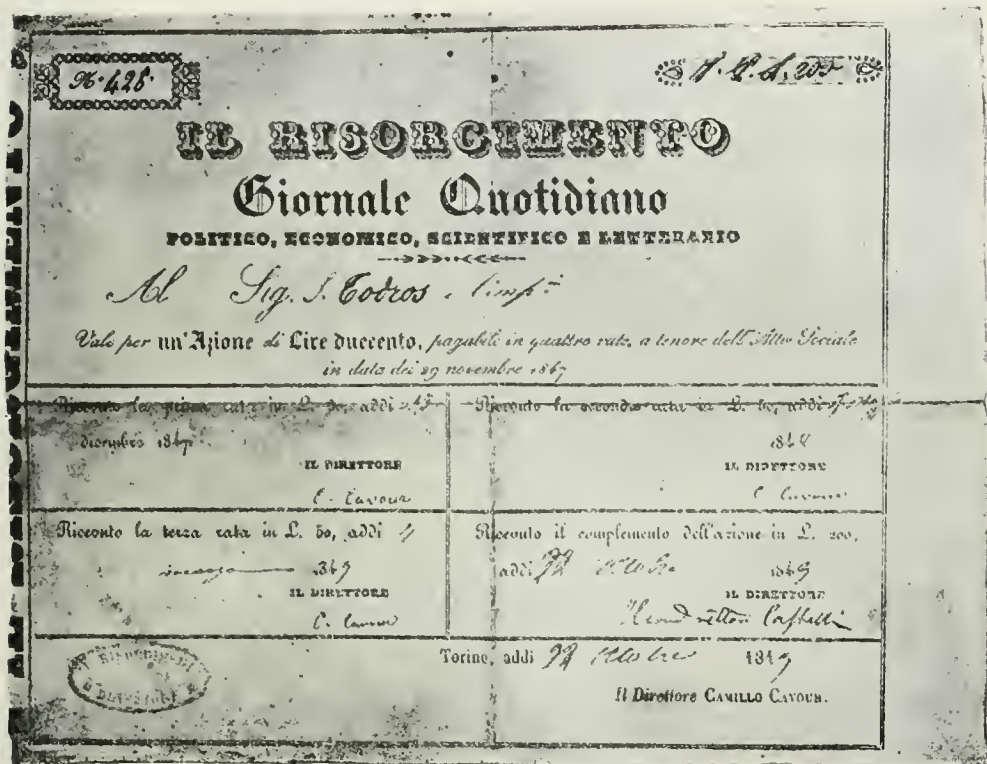 N. 428
IL RISORGIMENTO
Giornale Quotidiano
POLITICO, ECONOMICO, SCIENTIFICO E LETTERARIO
Al Sig. S. Todros
Vale per un'Azione di Lire duecento, pagabili in quattro rate, a tenore dell'Atto Sociale
in data dei 29 novembre 1847
Ricevuto la prima rata in L. 50, addi
dicembre 1847
IL DIRETTORE
C. Cavour
Ricevuto la seconda rata in L. 50, addi
1848
IL DIRETTORE
C. Cavour
Riceuto la terza rata in L. 50, addi
1849
IL DIRETTORE
C. Cavour
Riceuto il complemento dell'azione in L. 200,
addi 22 ottobre 1849
IL DIRETTORE
Torino, addi 22 ottobre 1849
Il Direttore CAMILLO CAVOUR.
IL RISORGIMENTO